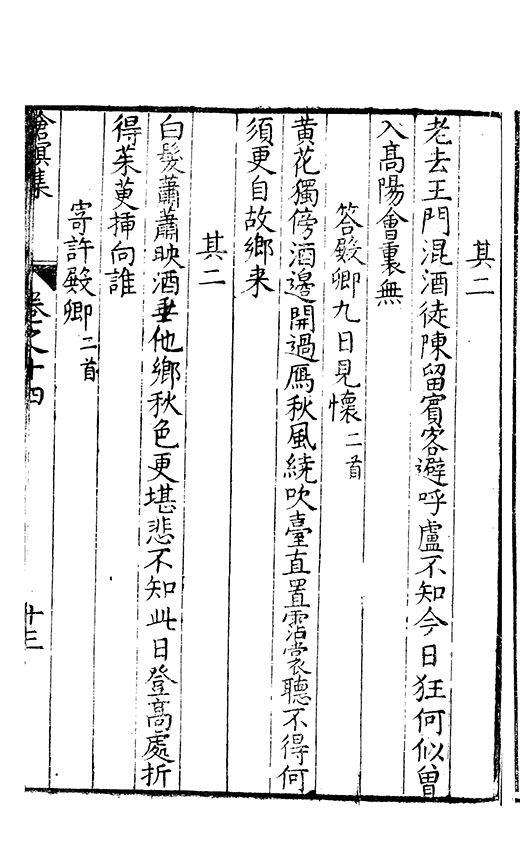 其二
老去王門混酒徒陳留賓客避呼盧不知今日狂何似曾
入高陽會裏無
答殿卿九日見懷二首
黄花獨傍酒邊開過鴈秋風繞吹臺直置霑裳聽不得何
須更自故鄉来
其二
白髮蕭蕭映酒垂他鄉秋色更堪悲不知此日登高處折
得茱萸挿向誰
寄許殿卿二首
滄溟集
卷之十四
十三